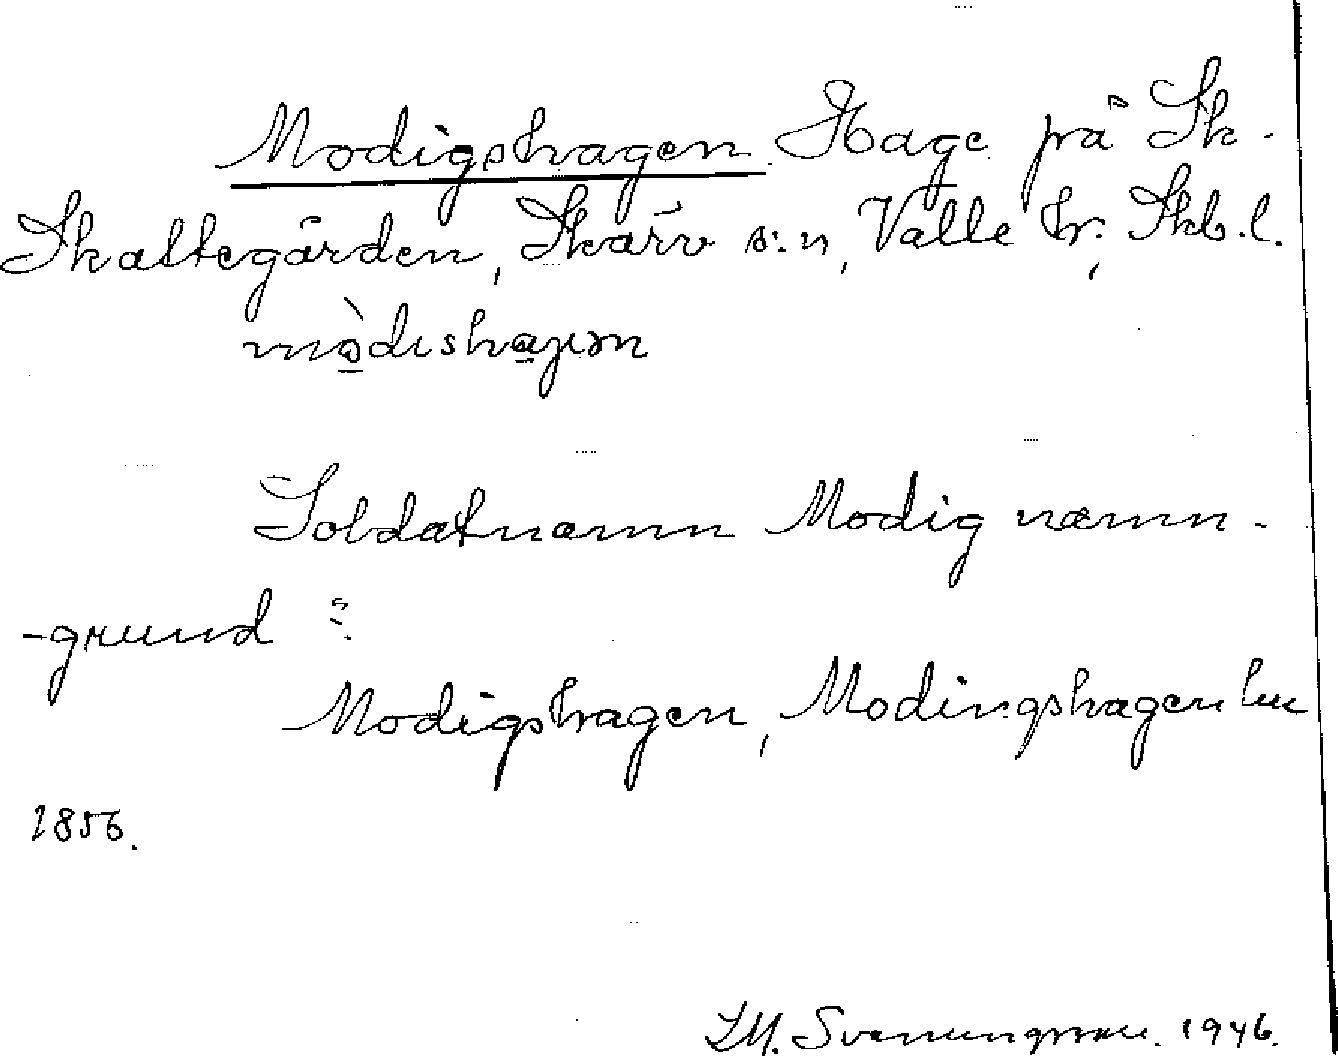 Modigshagen. Hage på Sk-
Skattegården, Skärv s:n, Valle hr. Skb.l.
mòdishaγən
Soldatnamn Modig namn-
-grund?
Modigshagen, Modingshagen lm
1856.
S.M. Svenungsson. 1946.